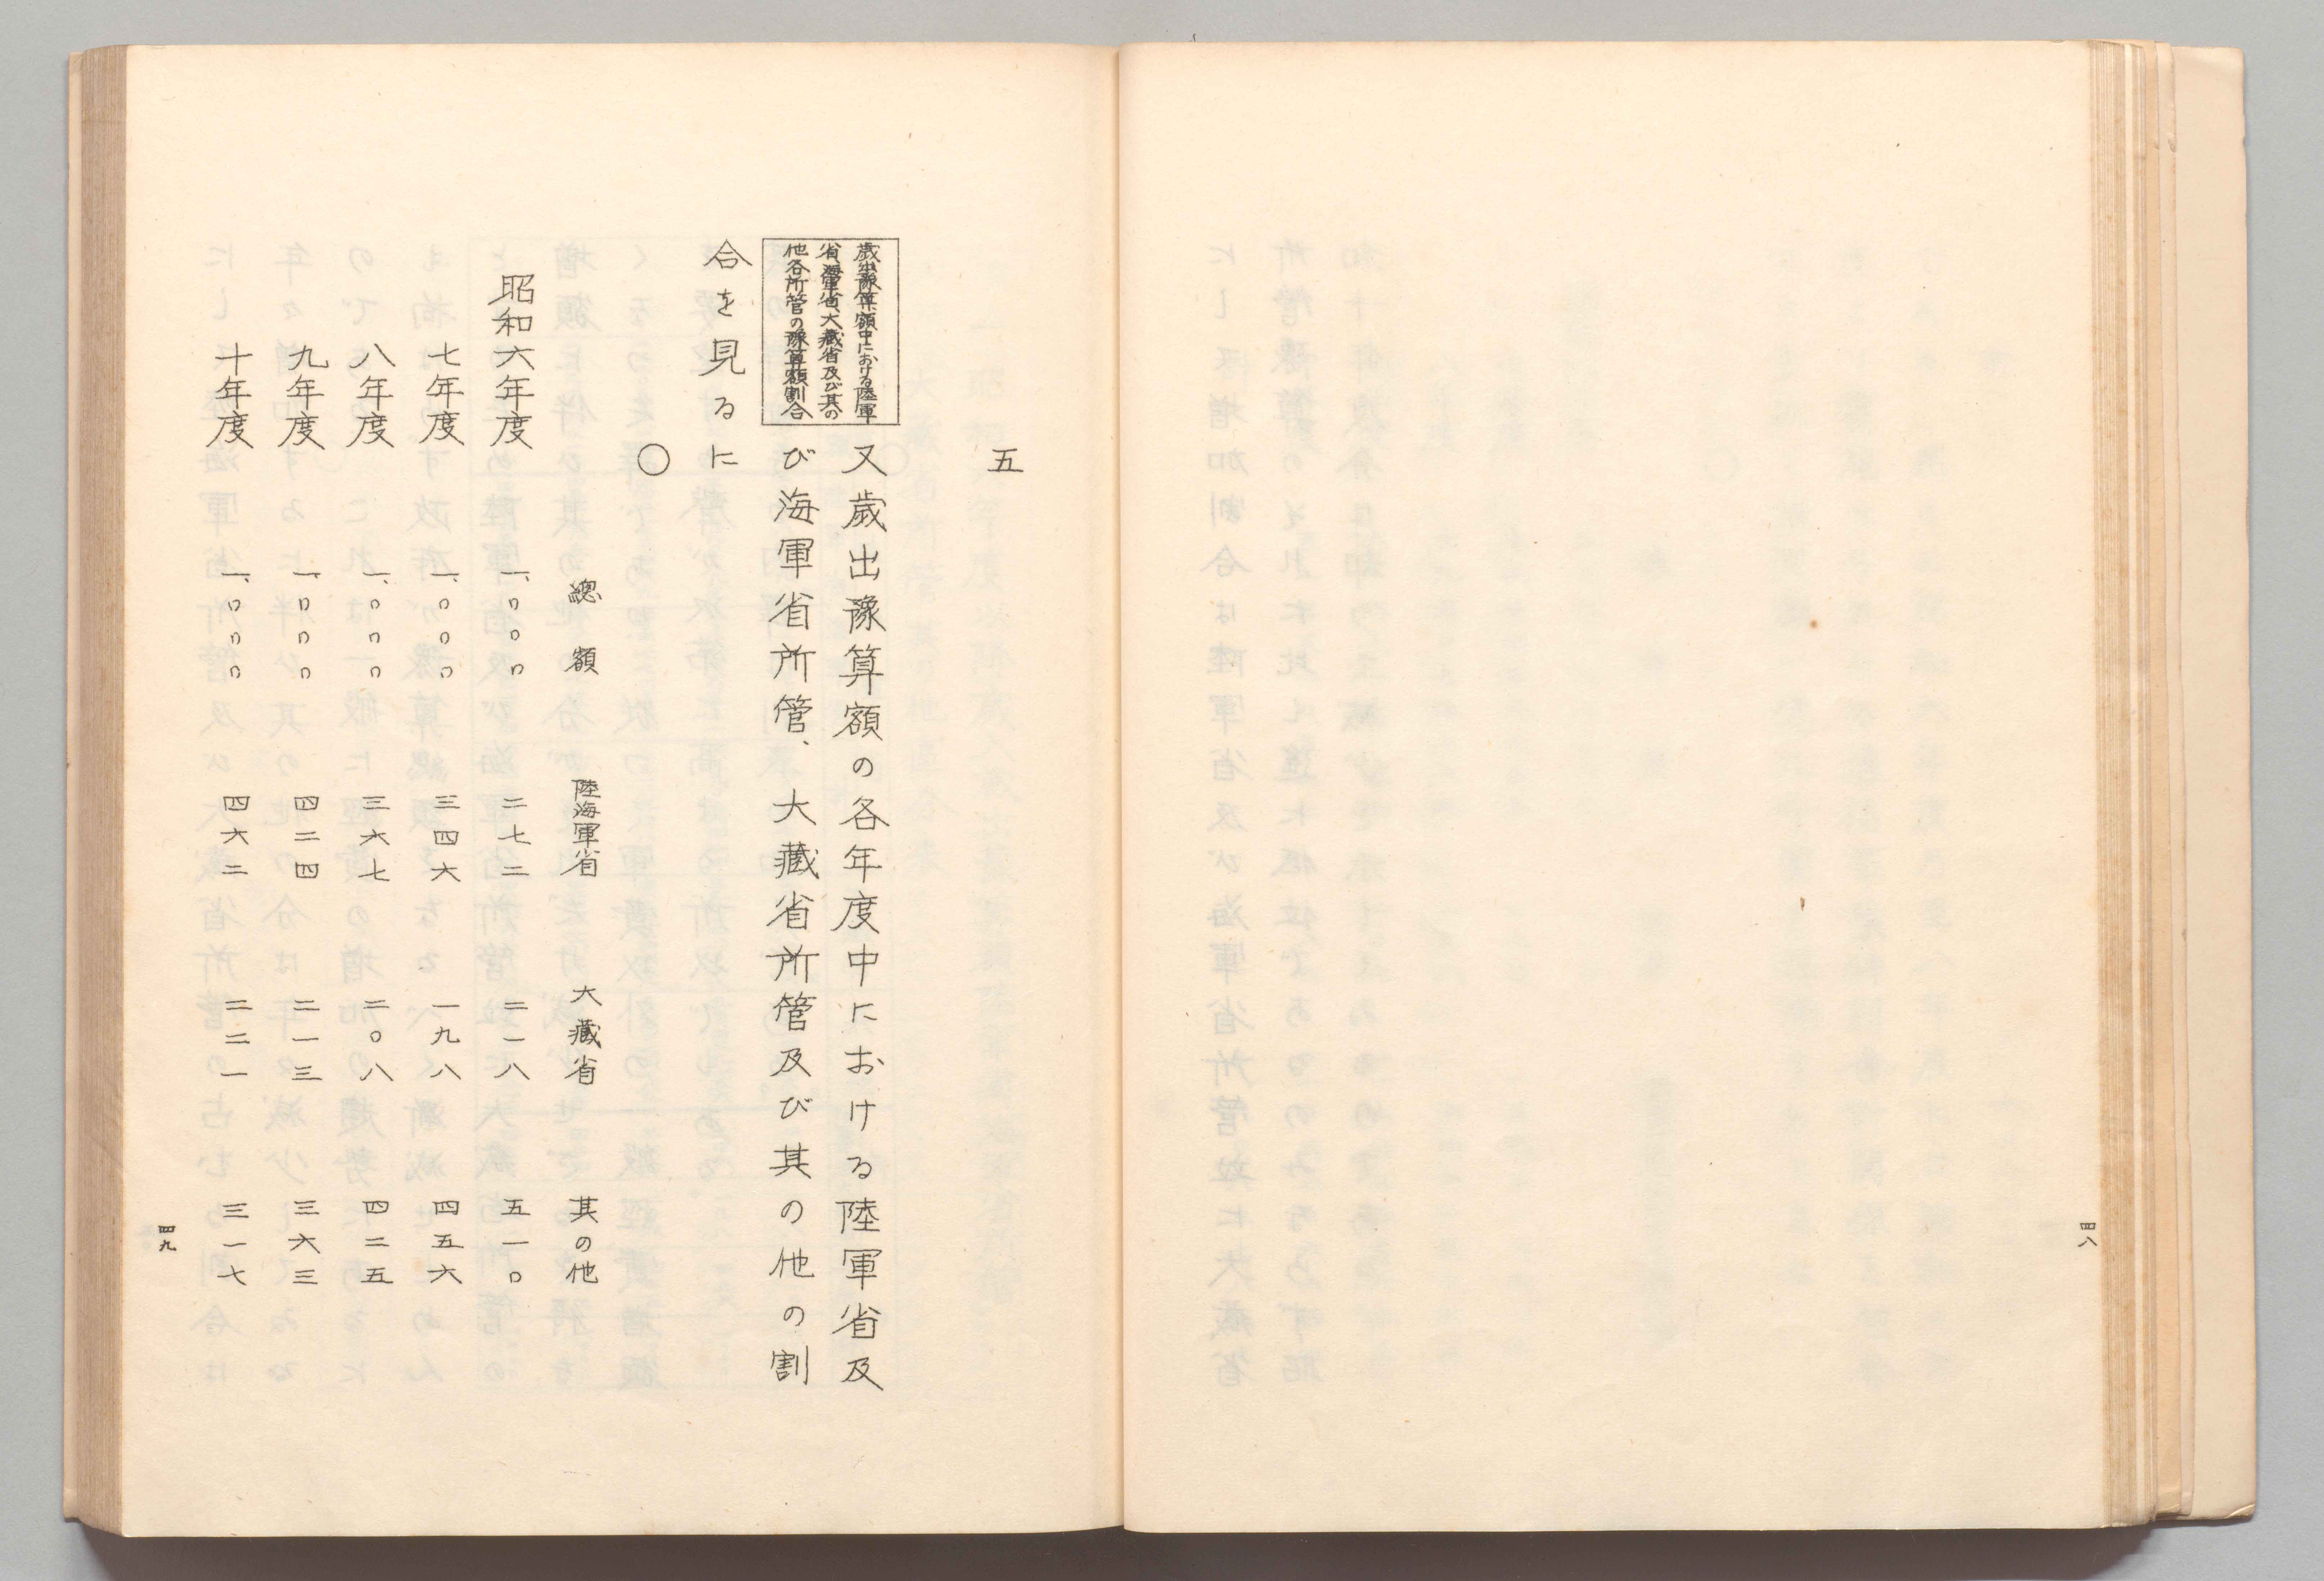 四八
五
歲出豫算額中における陸軍
省、海軍省、大藏省及び其の
他各所管の豫算額割合
又歲出豫算額の各年度中における陸軍省及
び海軍省所管、大藏省所管及び其の他の割
合を見るに
〇
總額 陸海軍省 大藏省 其の他
昭和六年度 一、〇〇〇 二七二 二一八 五一〇
七年度 一、〇〇〇 三四六 一九八 四五六
八年度 一、〇〇〇 三六七 二〇八 四二五
九年度 一、〇〇〇 四二四 二一三 三六三
十年度 一、〇〇〇 四六二 二二一 三一七
四九